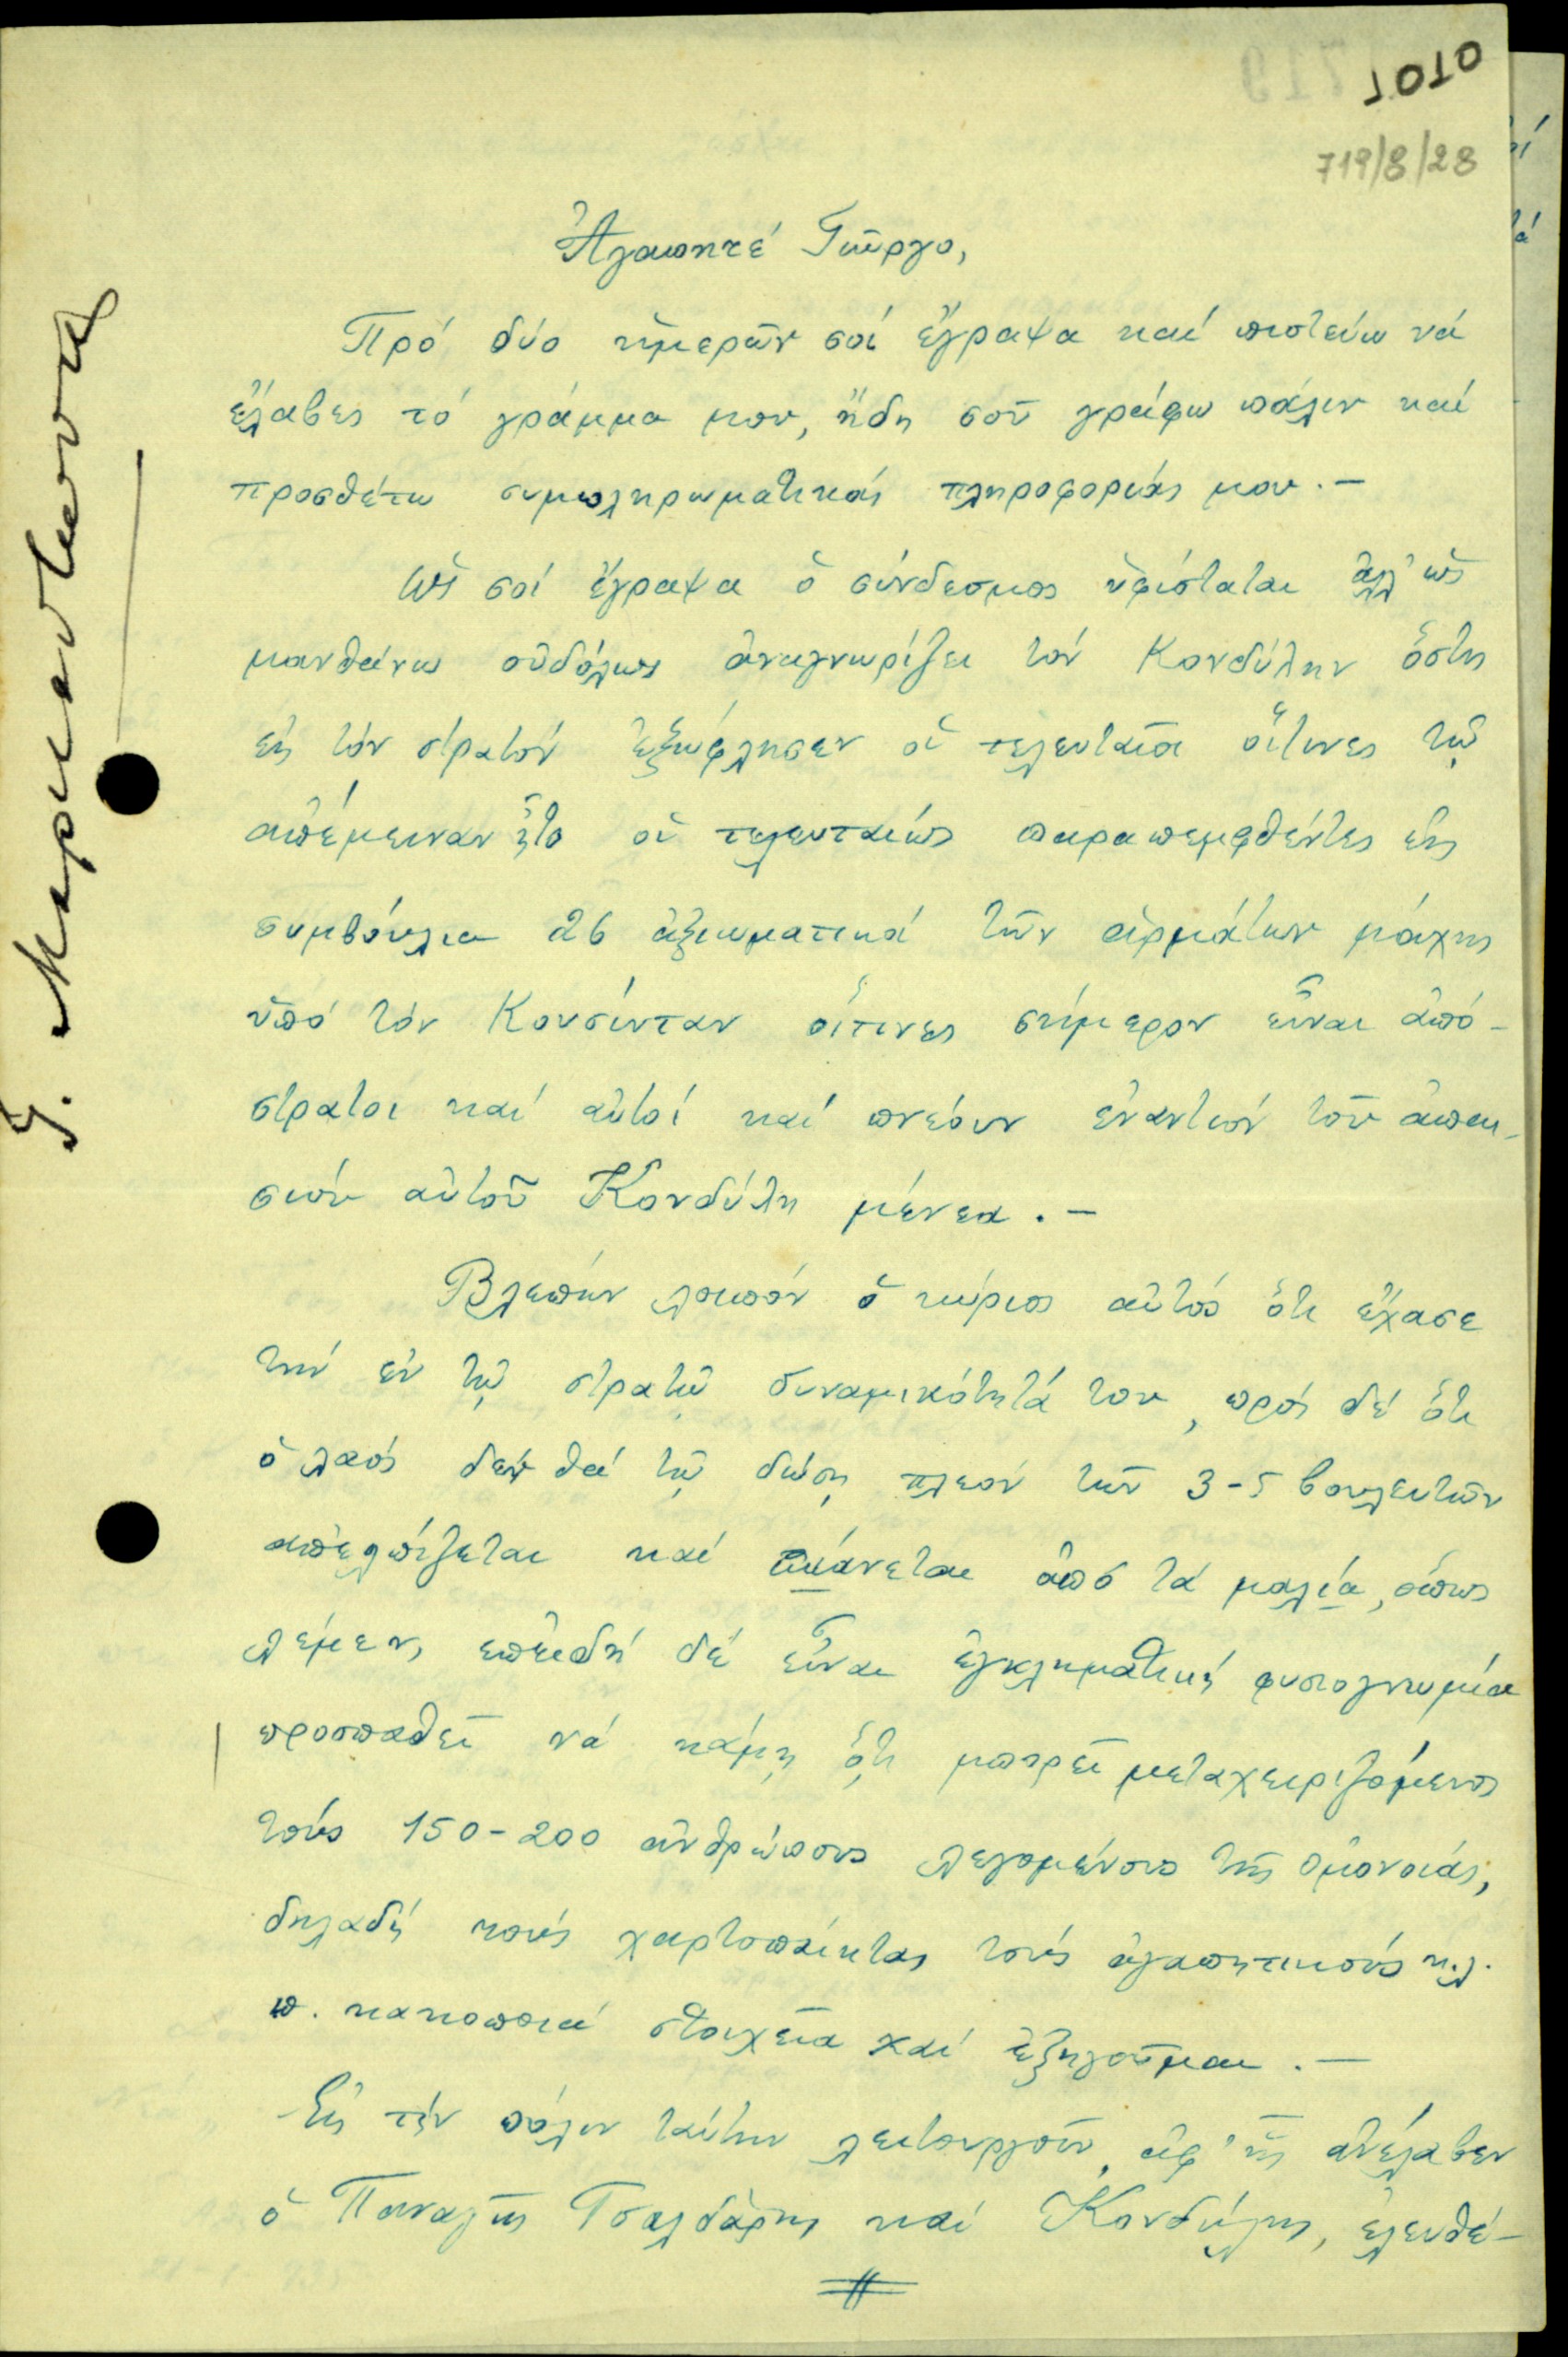 1010
719/8/28
Ἀγαπητέ Γιῶργο,
Πρό δύο ἡμερῶν σοί ἔγραψα καί πιστεύω νά
ἔλαβες τό γράμμα μου, ἤδη σοῦ γράφω πάλιν καί
προσθέτω συμπληρωματικάς πληροφορίας μου.—
Ὡς σοί ἔγραψα ὁ σύνδεσμος ὑφίσταται ἀλλ' ὡς
μανθάνω οὐδόλως ἀναγνωρίζει τόν Κονδύλην ὅστις
εἰς τόν στρατόν ἐξωφλησεν οἱ τελευταῖοι οἵτινες τῷ
ἀπέμειναν ἦτο οἱ τελευταίως παραπεμφθέντες εἰς
συμβούλια 26 ἀξιωματικοί τῶν ἁρμάτων μάχης
ὑπό τόν Κουσίνταν οἵτινες σήμερον εἶναι ἀπό-
στρατοι καί αὐτοί καί πνέουν ἐναντίον τοῦ ἀπαι-
σιου αὐτοῦ Κονδύλη μένεα.—
Βλέπων λοιπόν ὁ κύριος αὐτός ὅτι ἔχασε
τήν ἐν τῷ στρατῷ δυναμικότητά του, πρός δέ ὅτι
ὁ λαός δέν θά τῷ δώσῃ πλέον τῶν 3-5 βουλευτῶν
ἀπελπίζεται καί πιάνεται ἀπό τά μαλιά, ὅπως
λέμεν, ἐπειδή δέ εἶναι ἐγκληματική φυσιογνωμία
προσπαθεῖ νά κάμῃ ὅτι μπορεῖ μεταχειριζόμενος
τούς 150-200 ἀνθρώπους λεγομένους τῆς ὁμονοίας,
δηλαδή τούς χαρτοπαίκτας τούς ἀγαπητικούς κ.λ.
π. κακοποιά στοιχεῖα καί ἐξηγοῦμαι.—
Εἰς τήν πόλιν ταύτην λειτουργοῦν, ἀφ' ἧς ἀνέλαβεν
ὁ Παναγῆς Τσαλδάρης καί Κονδύλης, ἐλευθέ-